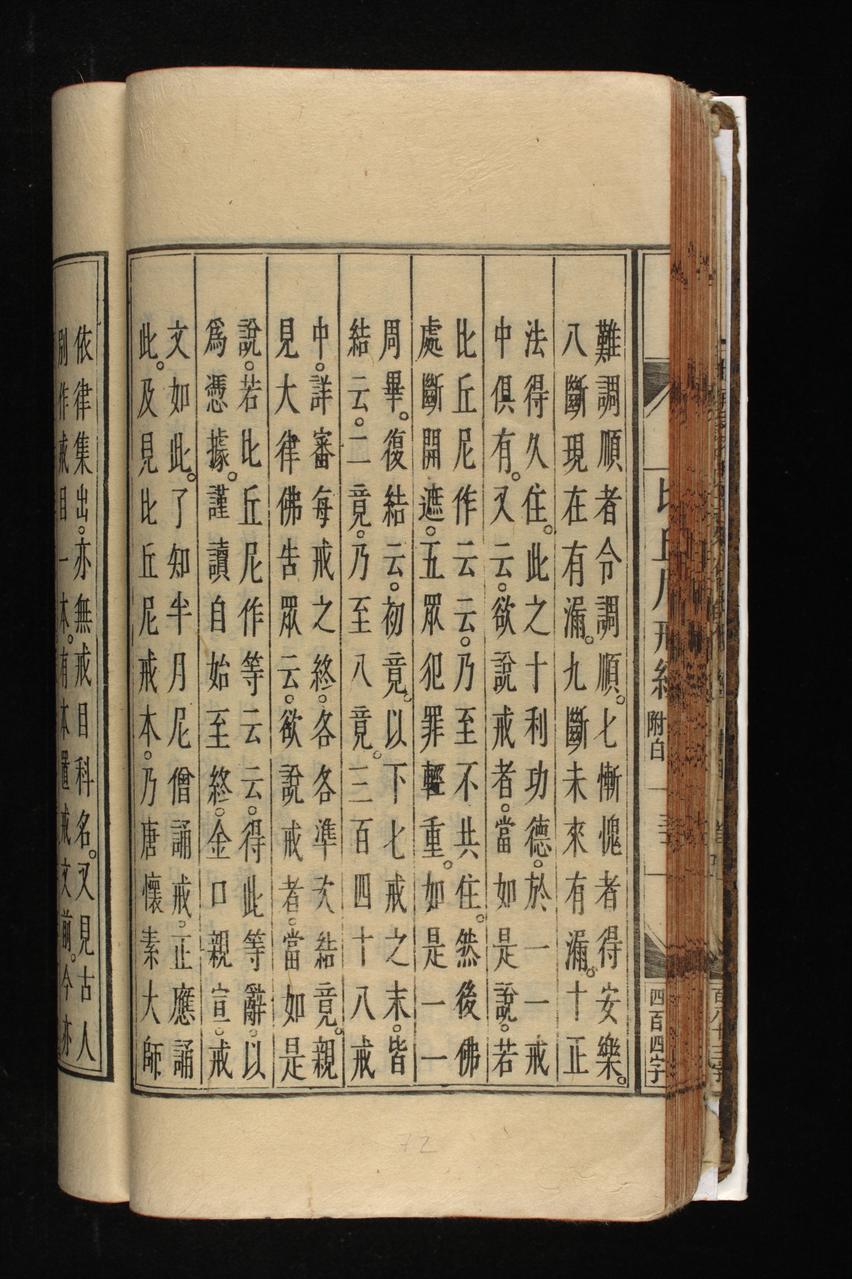 難調順者令調順。七慚愧者得安樂。
八斷現在有漏。九斷未來有漏。十正
法得久住。此之十利功德。於一一戒
中俱有。又云。欲說戒者。當如是說。若
比丘尼作云云。乃至不共住。然後佛
處斷開遮。五眾犯罪輕重。如是一一
周畢。復結云。初竟。以下七戒之末。皆
結云。二竟。乃至八竟。三百四十八戒
中。詳審每戒之終。各各準次結竟。親
見大律佛告眾云。欲說戒者。當如是
說。若比丘尼作等云云。得此等辭。以
為憑據。謹讀自始至終。金口親宣。戒
文如此。了知半月尼僧誦戒。正應誦
此。及見比丘尼戒本。乃唐懷素大師
依律集出。亦無戒目科名。又見古人
別作戒目一本。有本置戒文前。今亦
附白
四百四字
百八十三字